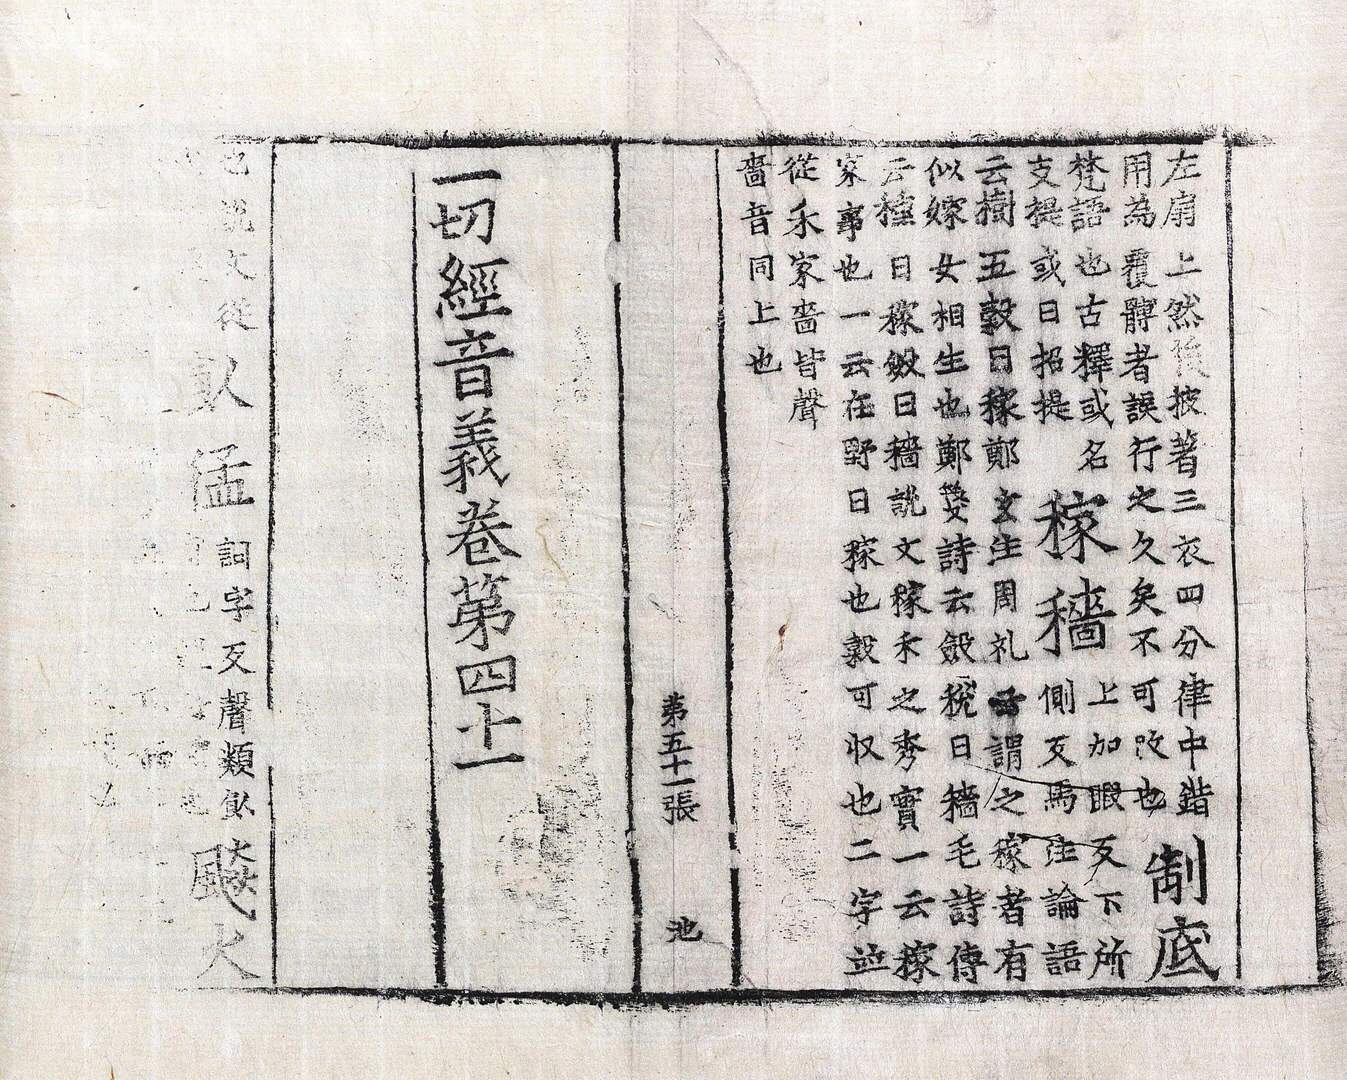 左扇上然後披著三衣四分律中鍇
用為覆髆者誤行之久矣不可改也
制底
梵語也古釋或名
支提或曰招提
稼穡
上加暇反下所
側反馬注論語
云樹五穀曰稼鄭玄注周礼云謂之稼者有
似嫁女相生也鄭箋詩云斂稅曰穡毛詩傳
云種曰稼斂曰穡說文稼禾之秀實一云稼
家事也一云在野曰稼也穀可収也二字並
從禾家嗇皆聲
嗇音同上也
第五十一張 池
一切經音義卷第四十一
也說文從
猛
字反聲類
火